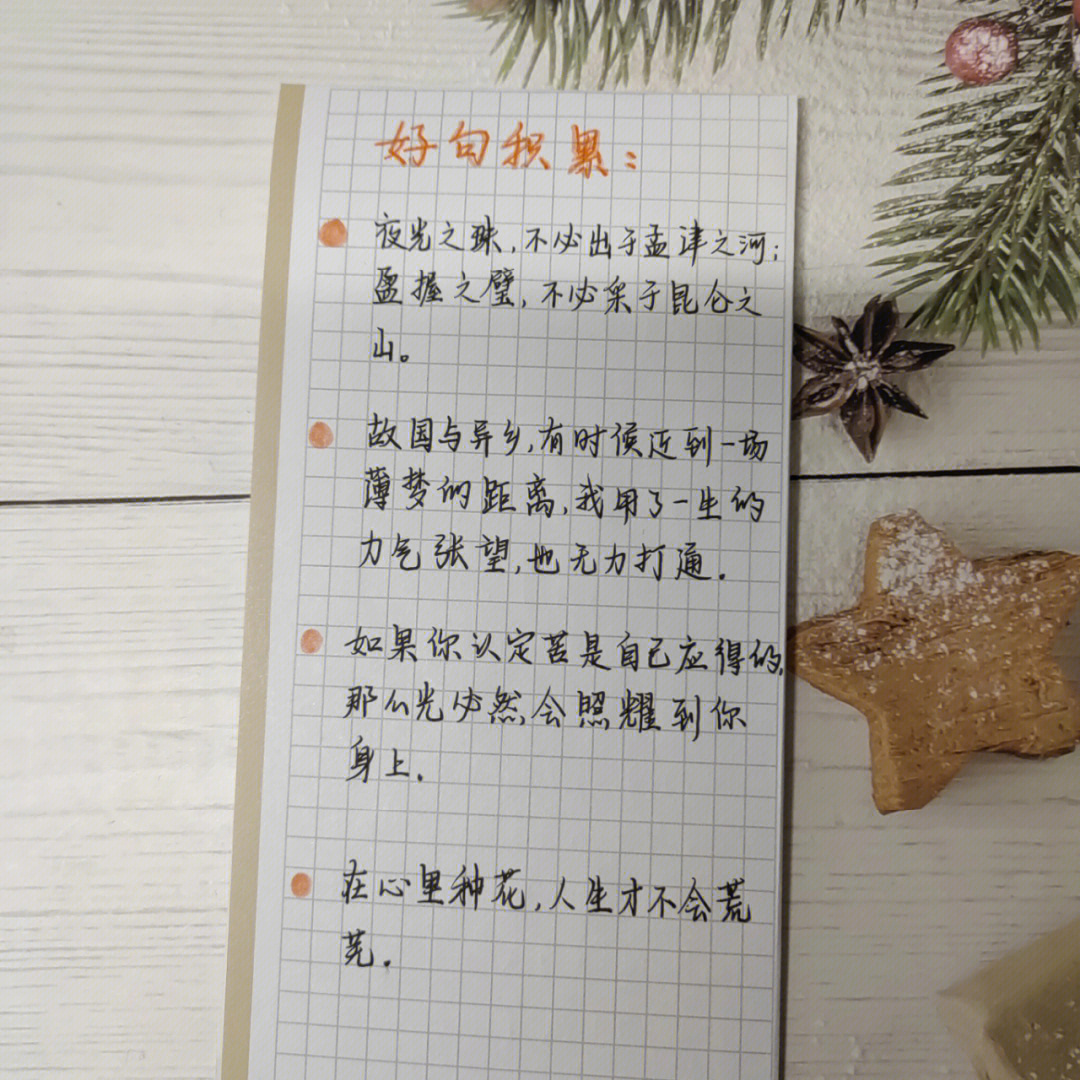 好句积累：
夜光之珠，不必出于孟津之河；
盈握之璧，不必采于昆仑之
山。
故国与异乡，有时候近到一场
薄梦的距离，我用了一生的
力气张望，也无力打通.
如果你认定苦是自己应得的，
那么光必然会照耀到你
身上.
在心里种花，人生才不会荒
芜.